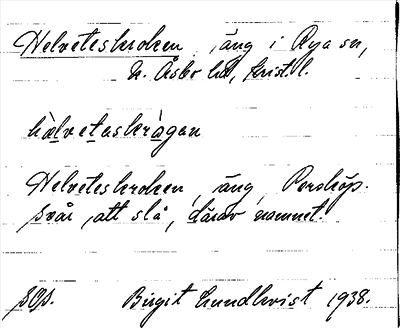 Helveteskroken, äng i Rya sn,
N. Åsbo hd, Krist. l.
hàlvetaskrågan
Helveteskroken, äng, Perstöp.
Svår att slå, därav namnet.
Birgit Lundkvist 1938.